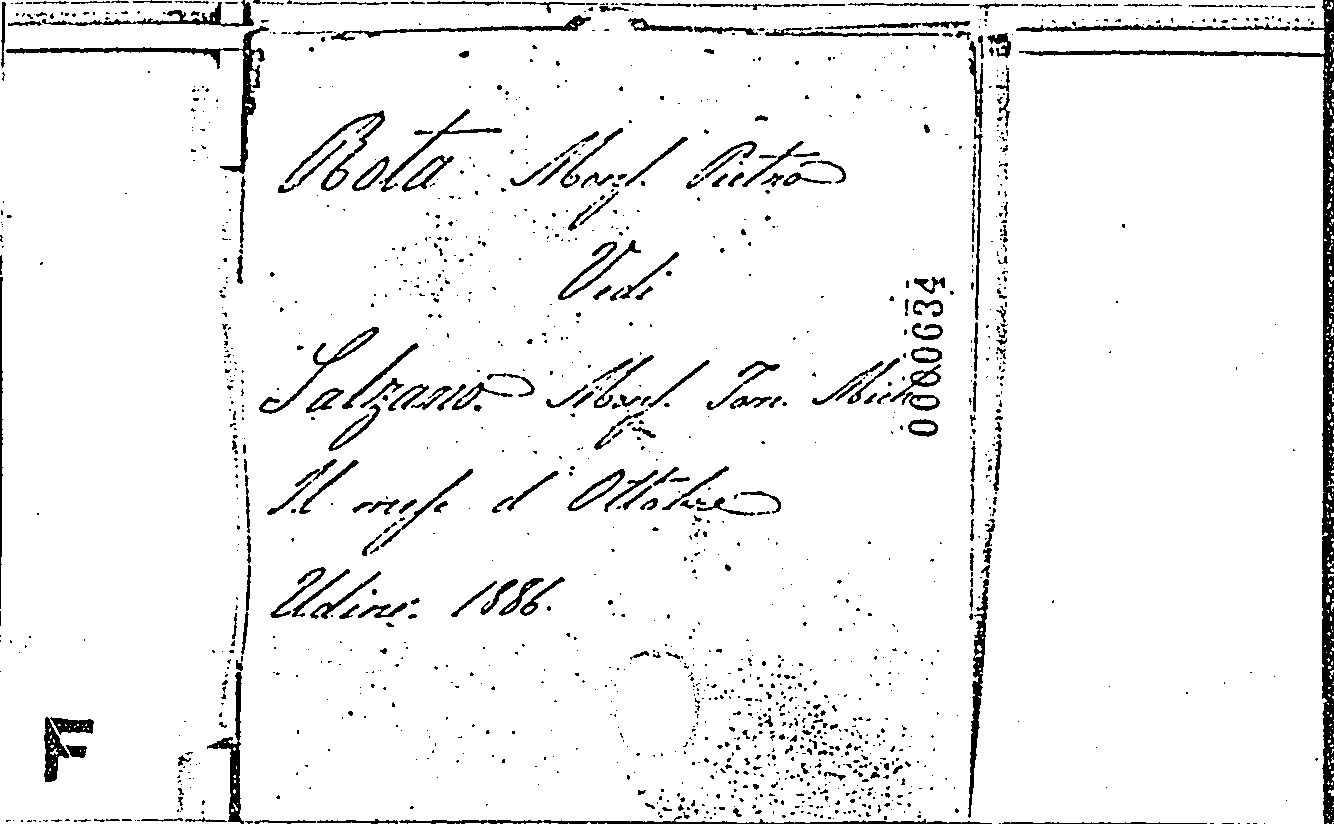 Rota Mons. Pietro
Vedi
Salzano. Mons. Tom. Mich
Il mese d'Ottobre
Udine. 1886.
0000634
F